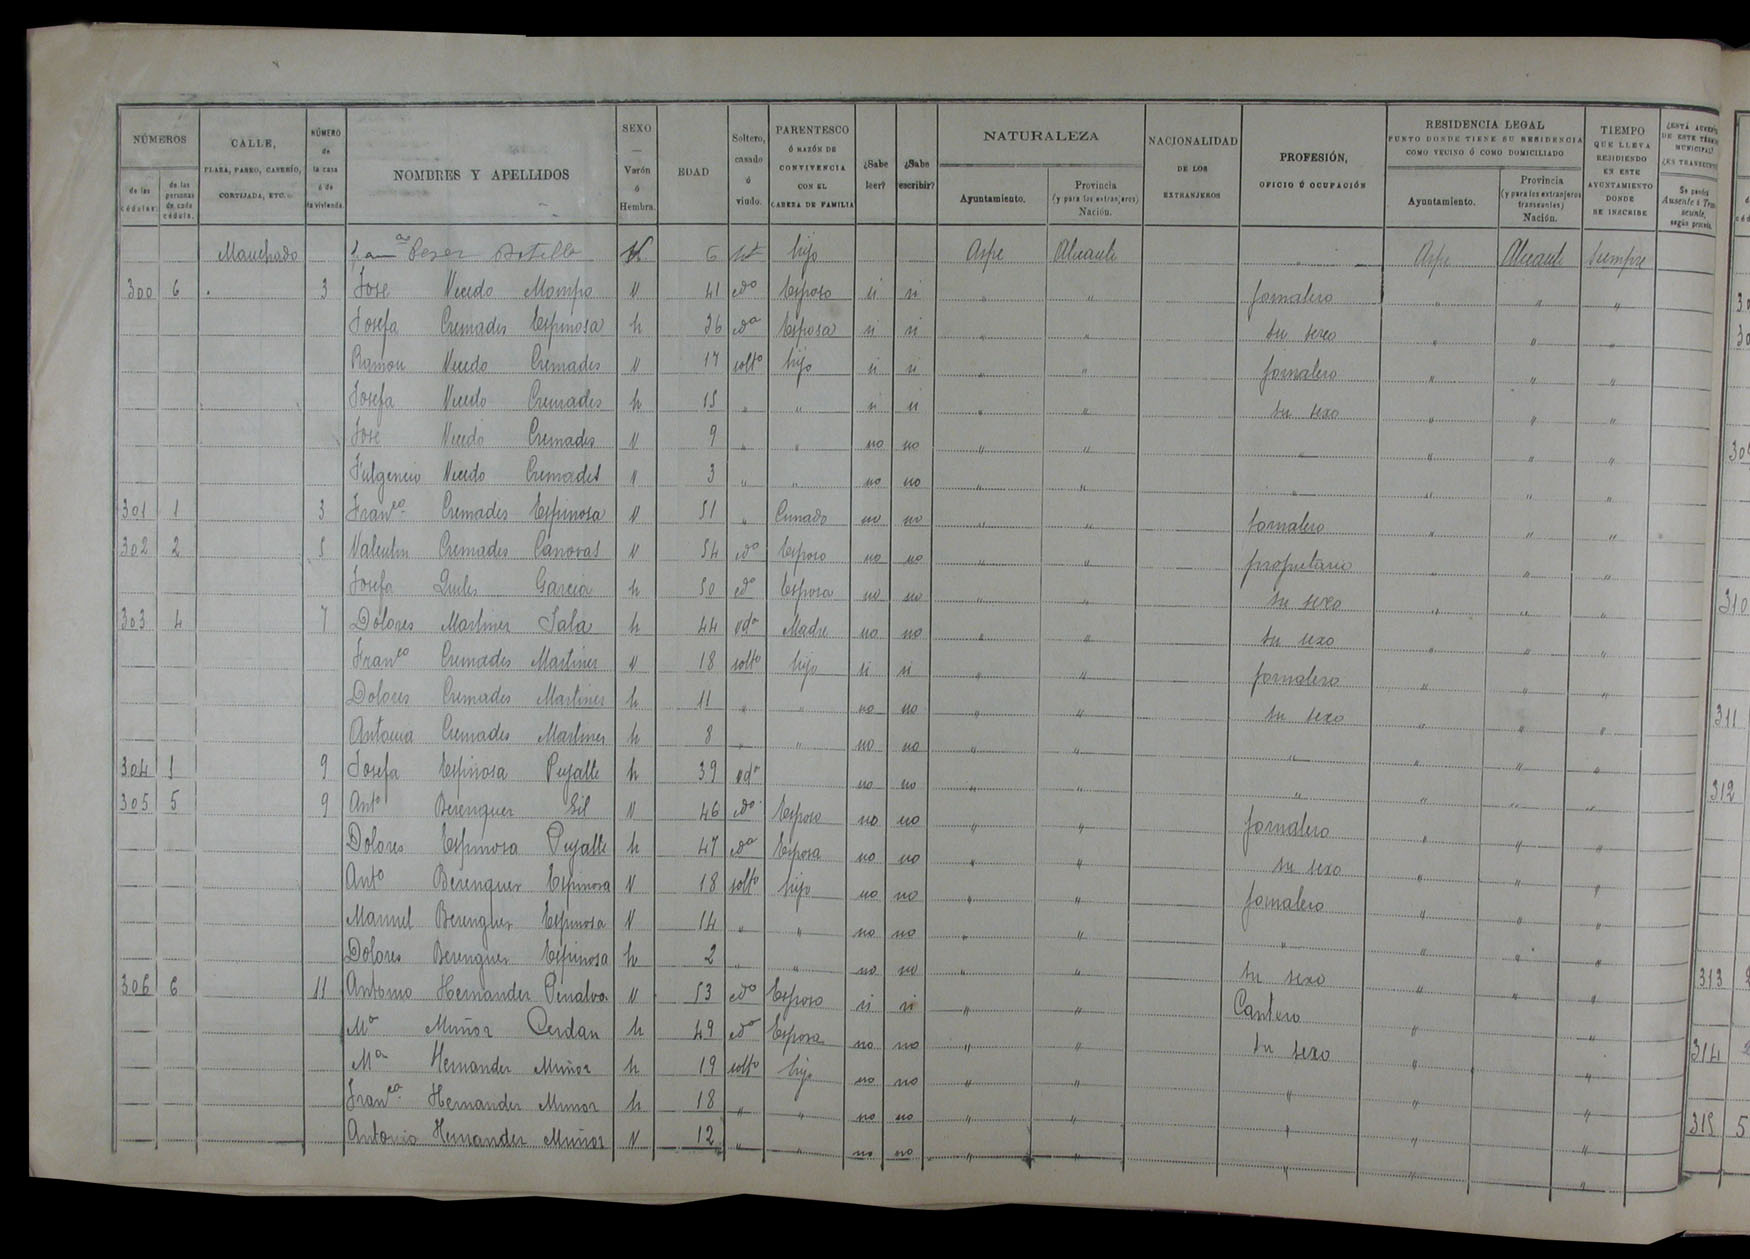 NÚMEROS | CALLE, PLAZA, PASEO, CASERÍO, CORTIJADA, ETC. | NÚMERO de la casa ó de la vivienda. | NOMBRES Y APELLIDOS | SEXO — Varón ó Hembra. | EDAD | Soltero, casado ó viudo. | PARENTESCO Ó RAZÓN DE CONVIVENCIA CON EL CABEZA DE FAMILIA | ¿Sabe leer? | ¿Sabe escribir? | NATURALEZA | NACIONALIDAD DE LOS EXTRANJEROS | PROFESIÓN, OFICIO Ó OCUPACIÓN | RESIDENCIA LEGAL PUNTO DONDE TIENE SU RESIDENCIA COMO VECINO Ó COMO DOMICILIADO | TIEMPO QUE LLEVA RESIDIENDO EN ESTE AYUNTAMIENTO DONDE SE INSCRIBE
de las cédulas. | de las personas de cada cédula. | Ayuntamiento. | Provincia (y para los extranjeros) Nación. | Ayuntamiento. | Provincia (y para los extranjeros transeuntes) Nación.
Manchado | 6 | hijo | Aspe | Alicante | Aspe | Alicante | Siempre
300 | 6 | 3 | Jose Vicedo Mompo | V | 41 | cdo | Esposo | si | si | " | " | Jornalero | " | " | "
Josefa Cremades Espinosa | h | 36 | cda | Esposa | si | si | " | " | su sexo | " | " | "
Ramon Vicedo Cremades | V | 17 | solto | hijo | si | si | " | " | Jornalero | " | " | "
Josefa Vicedo Cremades | h | 15 | " | " | si | si | " | " | su sexo | " | " | "
Jose Vicedo Cremades | V | 9 | " | " | no | no | " | " | " | " | " | "
Fulgencio Vicedo Cremades | V | 3 | " | " | no | no | " | " | " | " | " | "
301 | 1 | 3 | Franco Cremades Espinosa | V | 51 | " | Cunado | no | no | " | " | Jornalero | " | " | "
302 | 2 | 5 | Valentin Cremades Canovas | V | 54 | cdo | Esposo | no | no | " | " | propietario | " | " | "
Josefa Quiles Garcia | h | 50 | cda | Esposa | no | no | " | " | su sexo | " | " | "
303 | 4 | 7 | Dolores Martinez Sala | h | 44 | vda | Madre | no | no | " | " | su sexo | " | " | "
Franco Cremades Martinez | V | 18 | solto | hijo | si | si | " | " | Jornalero | " | " | "
Dolores Cremades Martinez | h | 11 | " | " | no | no | " | " | su sexo | " | " | "
Antonia Cremades Martinez | h | 8 | " | " | no | no | " | " | " | " | " | "
304 | 1 | 9 | Josefa Espinosa Pujalte | h | 39 | vda | no | no | " | " | " | " | " | "
305 | 5 | 9 | Anto Berenguer Gil | V | 46 | cdo | Esposo | no | no | " | " | Jornalero | " | " | "
Dolores Espinosa Pujalte | h | 47 | cda | Esposa | no | no | " | " | su sexo | " | " | "
Anto Berenguer Espinosa | V | 18 | solto | hijo | no | no | " | " | Jornalero | " | " | "
Manuel Berenguer Espinosa | V | 14 | " | " | no | no | " | " | " | " | " | "
Dolores Berenguer Espinosa | h | 2 | " | " | no | no | " | " | su sexo | " | " | "
306 | 6 | 11 | Antonio Hernandez Penalva | V | 53 | cdo | Esposo | si | si | " | " | Cantero | " | " | "
Ma Muñoz Cerdan | h | 49 | cda | Esposa | no | no | " | " | su sexo | " | " | "
Ma Hernandez Muñoz | h | 19 | solto | hijo | no | no | " | " | " | " | " | "
Franca Hernandez Munoz | h | 18 | " | " | no | no | " | " | " | " | " | "
Antonio Hernandez Muñoz | V | 12 | " | " | no | no | " | " | " | " | " | "
310
311
312
313
314
315 | 5